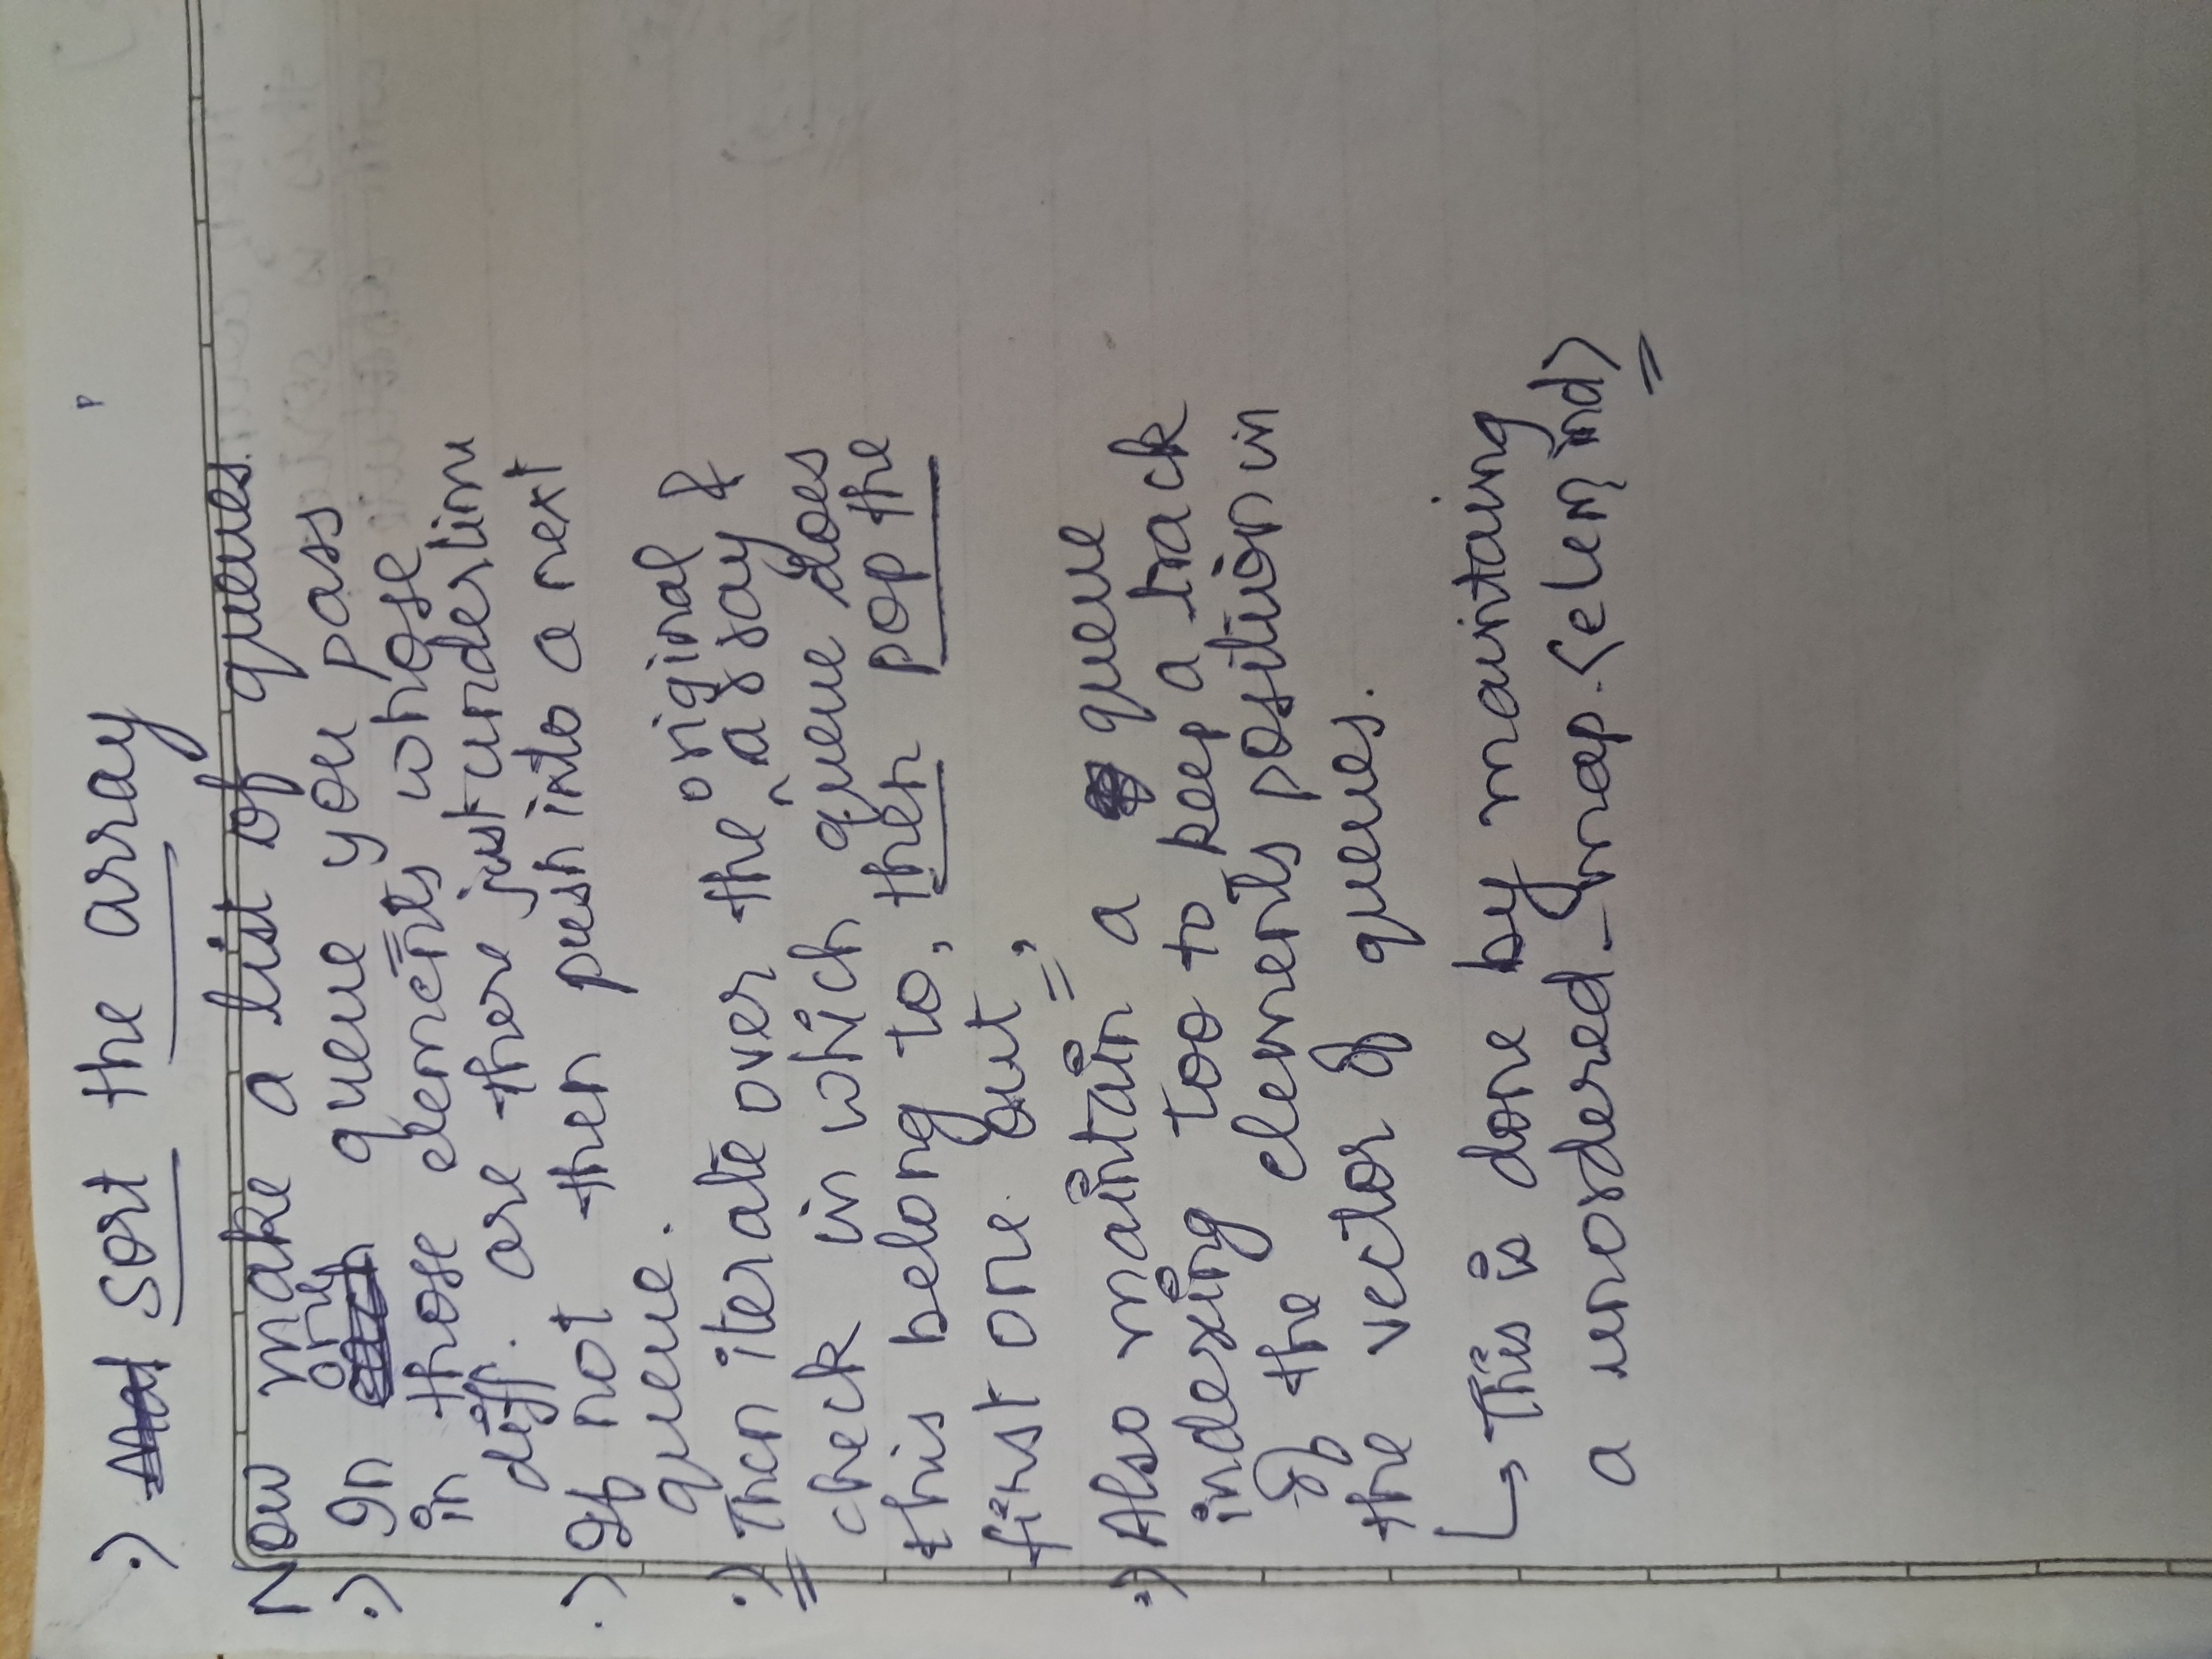 ·) sort the array
Now make a list of queues.
·) In any queue you pass
in those elements whose
diff. are there just under
·) If not then push into a next
queue.
·) Then iterate over the original array &
check in which queue does
this belong to, then pop the
first one out,
·) Also maintain a queue
indexing too to keep a track
of the elements position in
the vector of queues.
↳ This is done by maintaing
a unordered_map <elem, ind>